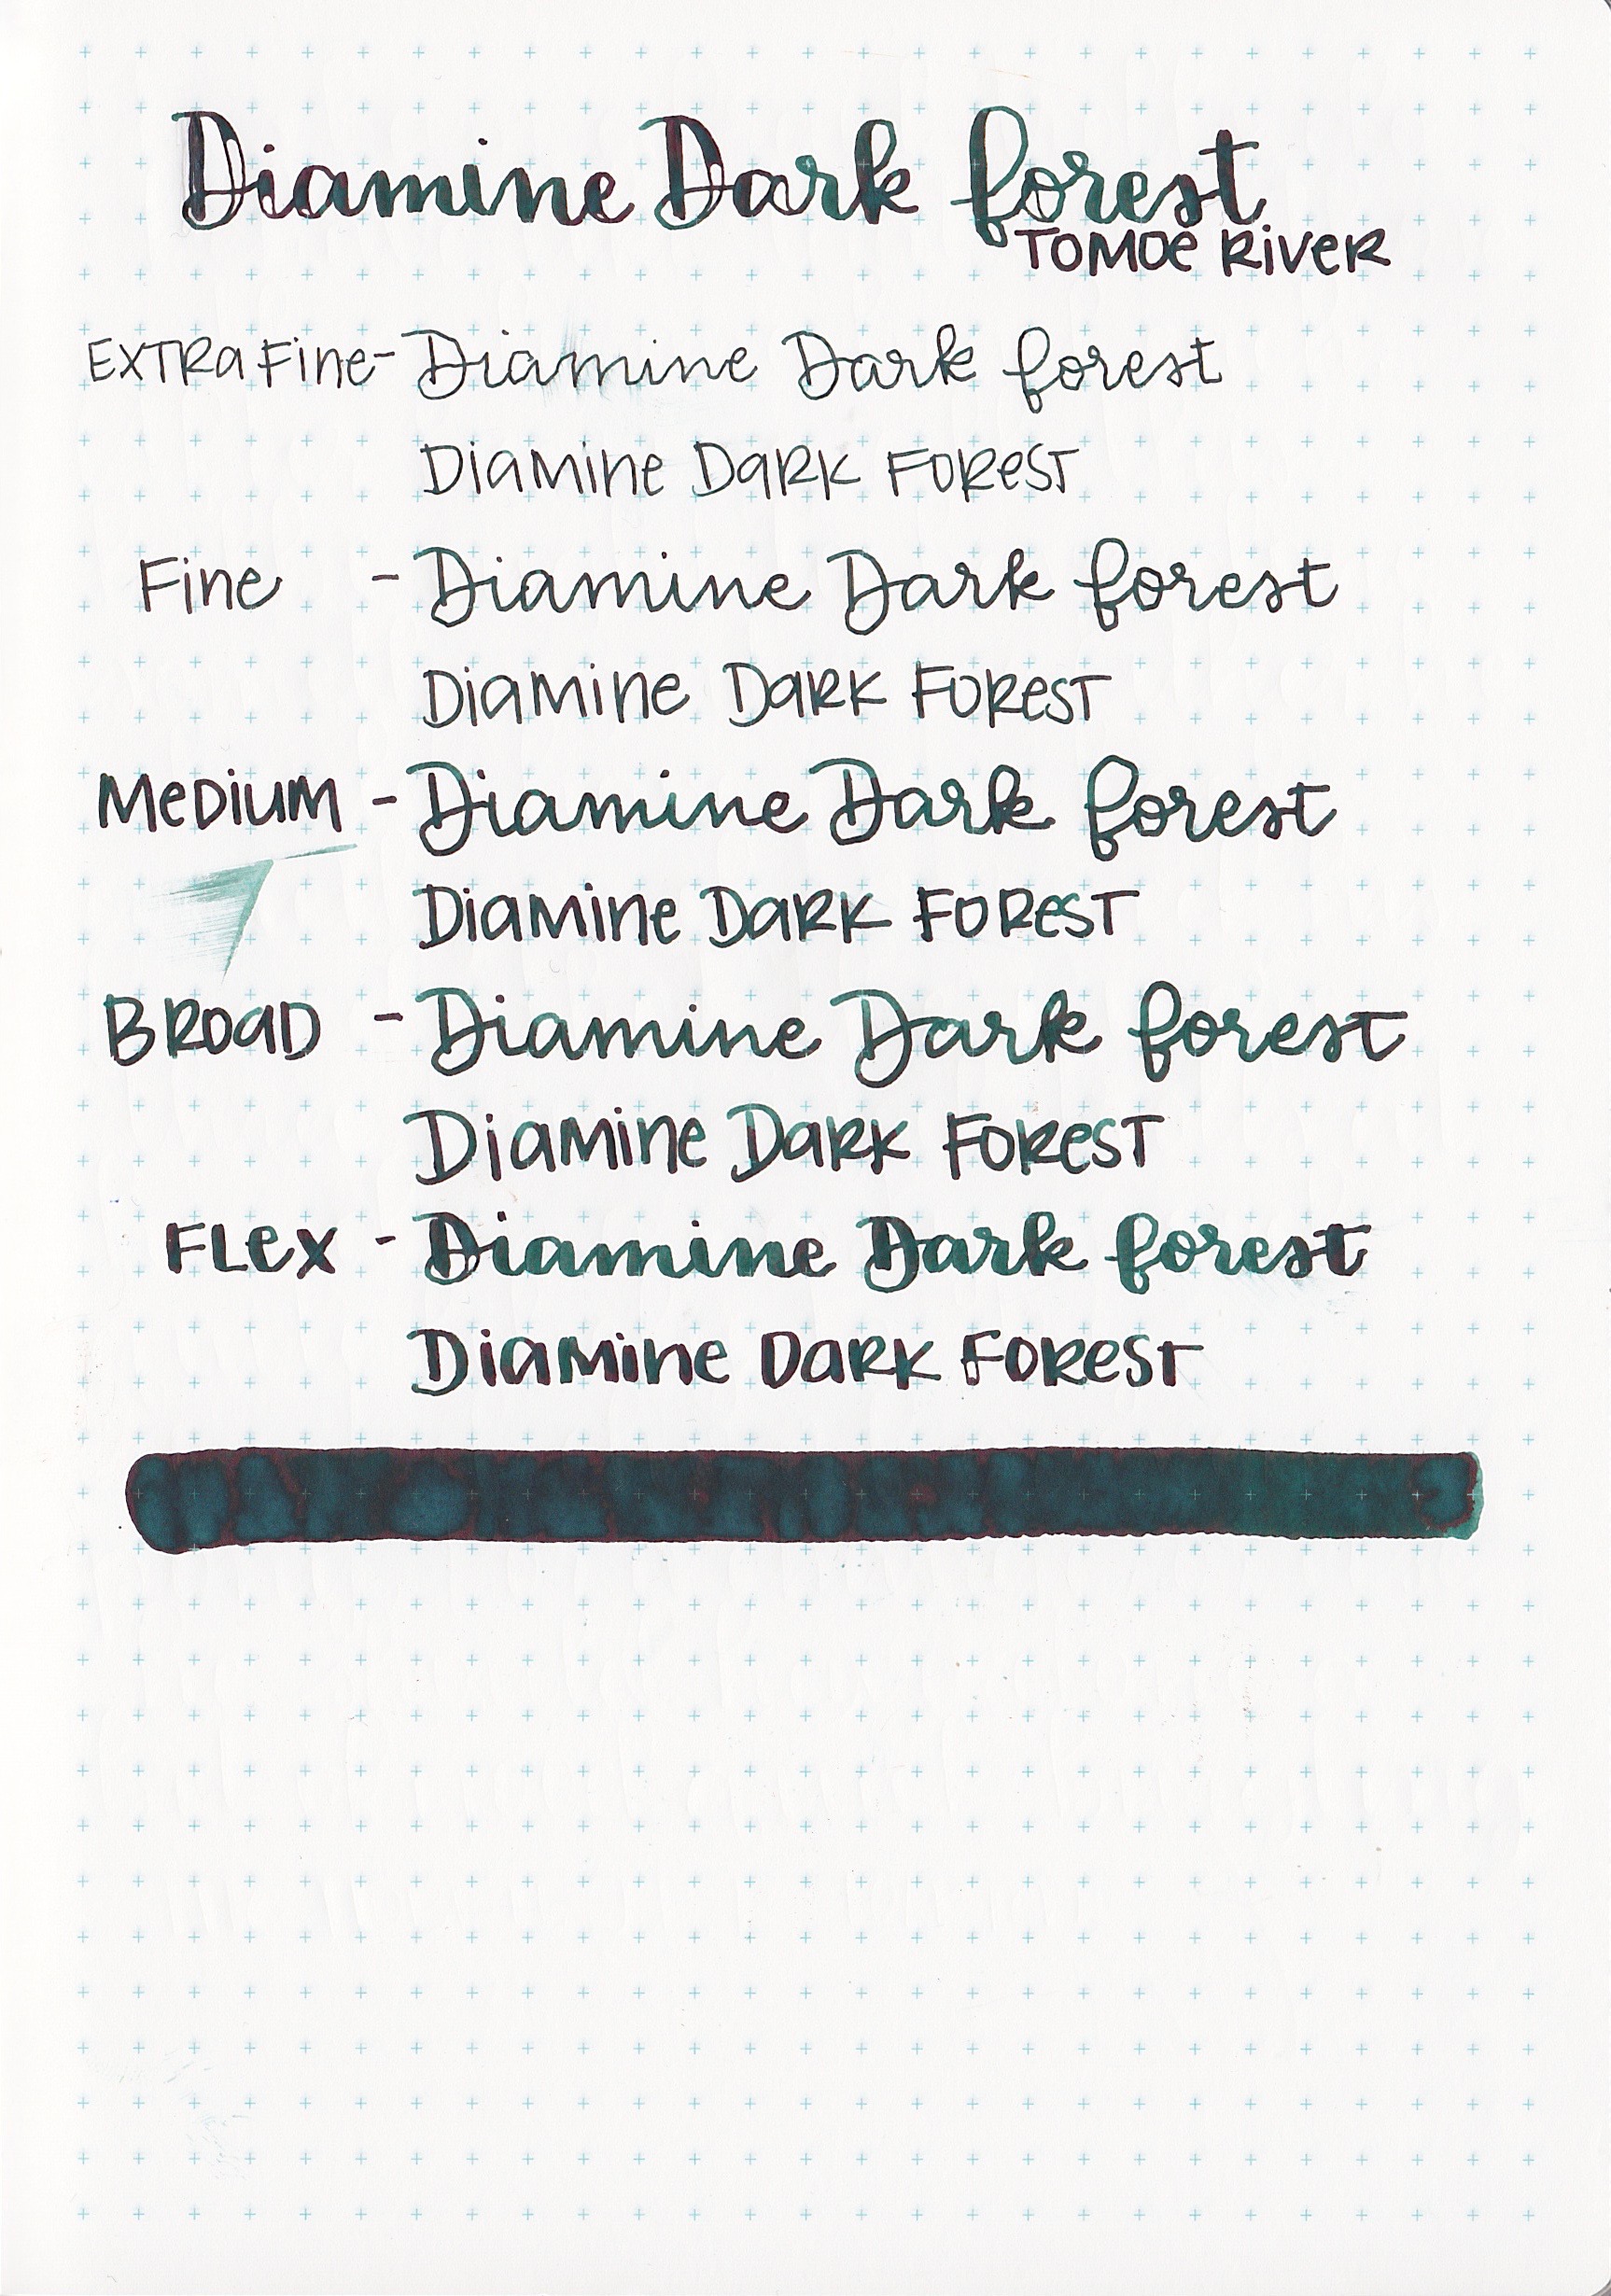 Diamine Dark forest
TOMOe RiVeR
EXTRa Fine - Diamine Dark forest
DiaMine DaRK FOReST
Fine - Diamine Dark forest
DiaMine DaRK FOReST
MeDiUM - Diamine Dark forest
DiaMine DaRK FOReST
BROaD - Diamine Dark forest
DiaMine DaRK FOReST
FLex - Diamine Dark forest
DiaMine DaRK FOReST